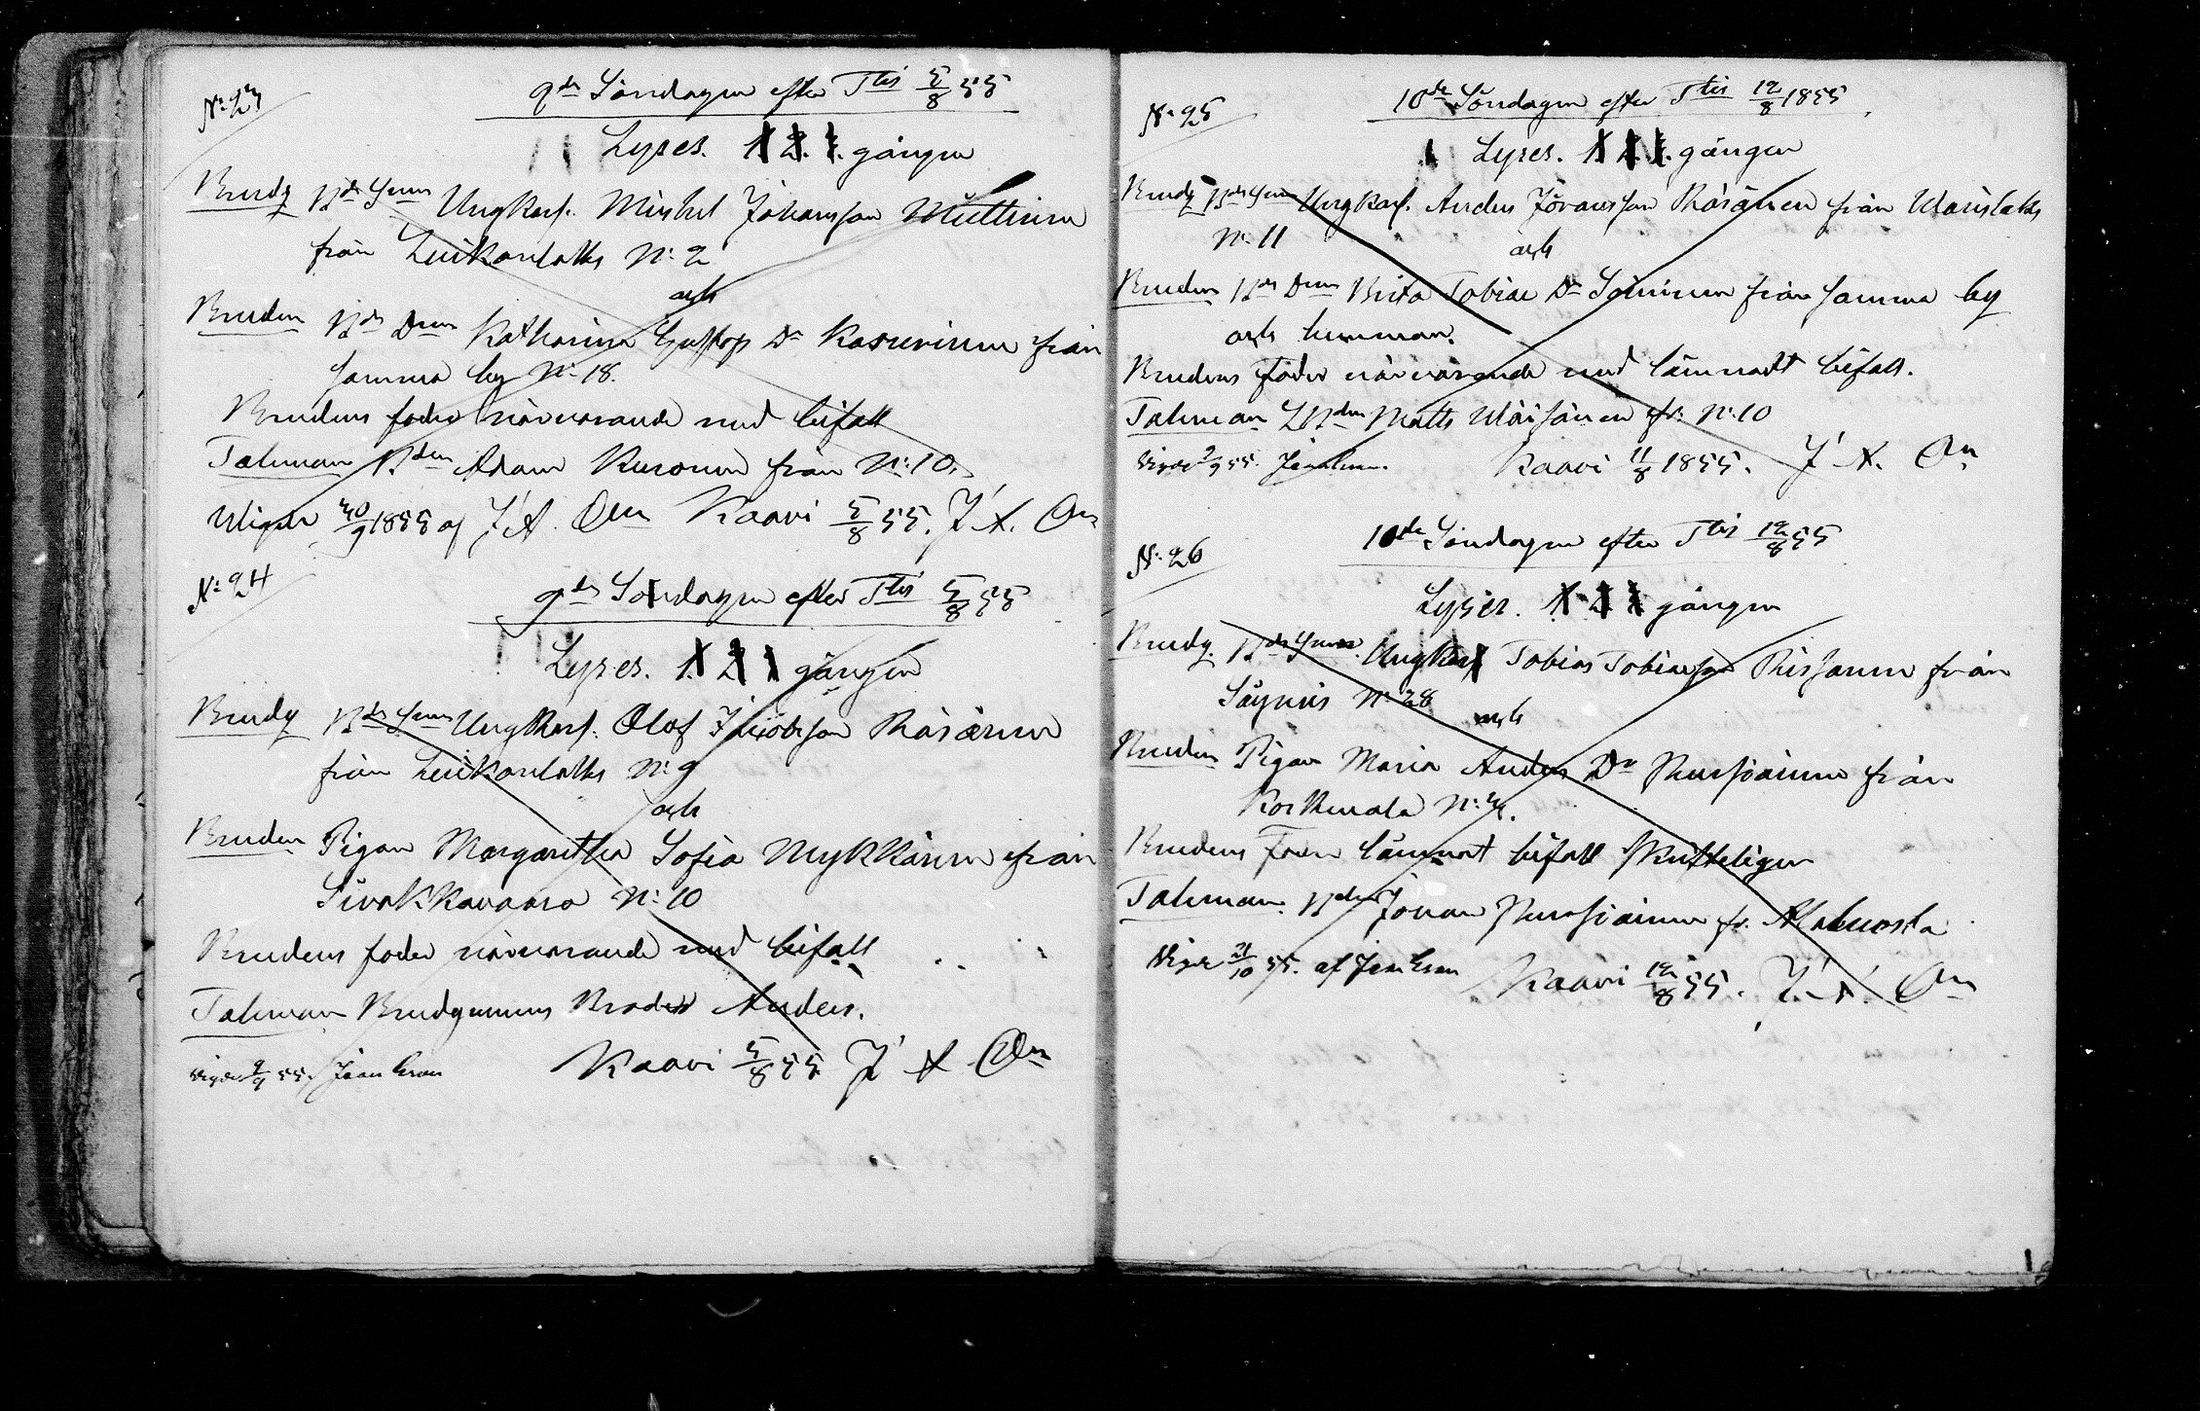 N: 23
9de Söndagen efter Ttis 5/8 55
Lyses. 1. 2. 3. gången
Brudg Bde Sonen Ungkarl. Mickel Johansson Miettinen
från Luikonlaks N: 2
och
Bruden Bde Dren Katharina Gustafs Dr Kasurinen från
samma by N: 18.
Brudens fader närvarande med bifall
Talman Bden Adam Kuronen från N: 10.
Vigde 30/9 1855 af J. A. Kaavi 5/8 55. J. A.
N: 24
9de Söndagen efter Ttis 5/8 55
Lyses. 1. 2. 3. gången
Brudg Bde Sonen Ungkarl. Olof Jacobsson Räsänen
från Luikonlaks N: 9
och
Bruden Pigan Margaretha Sofia Mykkänen från
Sivakkavaara N: 10
Brudens fader närvarande med bifall
Talman Brudgummens Broder Anders.
Vigde 55. Kaavi 5/8 55 J. A.
N: 25
10de Söndagen efter Ttis 12/8 1855
Lyses. 1. 2. 3. gången
Brudg Bde Sonen Ungkarl. Anders Jöransson Räsänen från
N: 11
och
Bruden Bde Dren Brita Tobiae Dr Soininen från samma by
och hemman.
Brudens fader närvarande med lämnadt bifall.
Talman Bden Matts Väisänen fr: N: 10
Vigde 2/9 55. Kaavi 11/8 1855. J. A.
N: 26
10de Söndagen efter Ttis 12/8 55
Lyses. 1. 2. 3. gången
Brudg. Bde Sonen. Ungkarl Tobias Tobiasson Rissanen från
Säyneis N: 28
och
Bruden Pigan Maria Anders Dr Pursiainen från
Kortteinen
Brudens lämnat bifall skrifteligen
Talman. Bden Johan Pursiainen fr. Alaluosta
Vigde 21/10 55. af Kaavi 12/8 55. J. A.